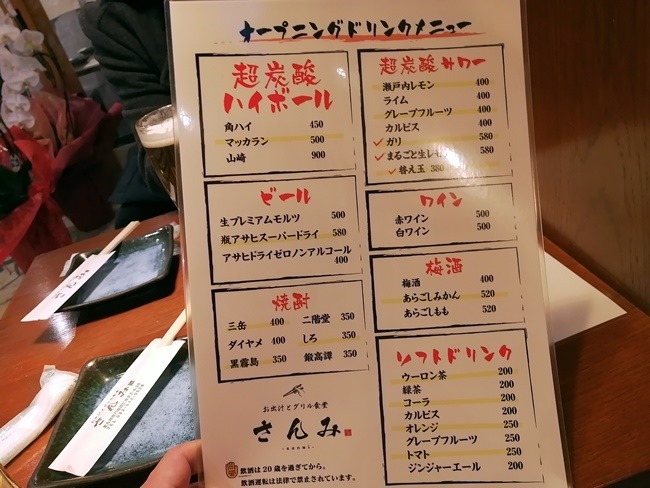 オープニングドリンクメニュー
超炭酸
ハイボール
角ハイ 450
マッカラン 500
山崎 900
ビール
生プレミアムモルツ 500
瓶アサヒスーパードライ 580
アサヒドライゼロノンアルコール
400
焼酎
三岳 400 二階堂 350
ダイヤメ 400 しろ 350
黒霧島 350 鍛高譚 350
お出汁とグリル食堂
さんみ
-sanmi-
飲酒は20歳を過ぎてから。
飲酒運転は法律で禁止されています。
超炭酸サワー
瀬戸内レモン 400
ライム 400
グレープフルーツ 400
カルピス 400
ガリ 580
まるごと生レモン 580
替え玉 380
ワイン
赤ワイン 500
白ワイン 500
梅酒
梅酒 400
あらごしみかん 520
あらごしもも 520
ソフトドリンク
ウーロン茶 200
緑茶 200
コーラ 200
カルピス 200
オレンジ 250
グレープフルーツ 250
トマト 250
ジンジャーエール 200